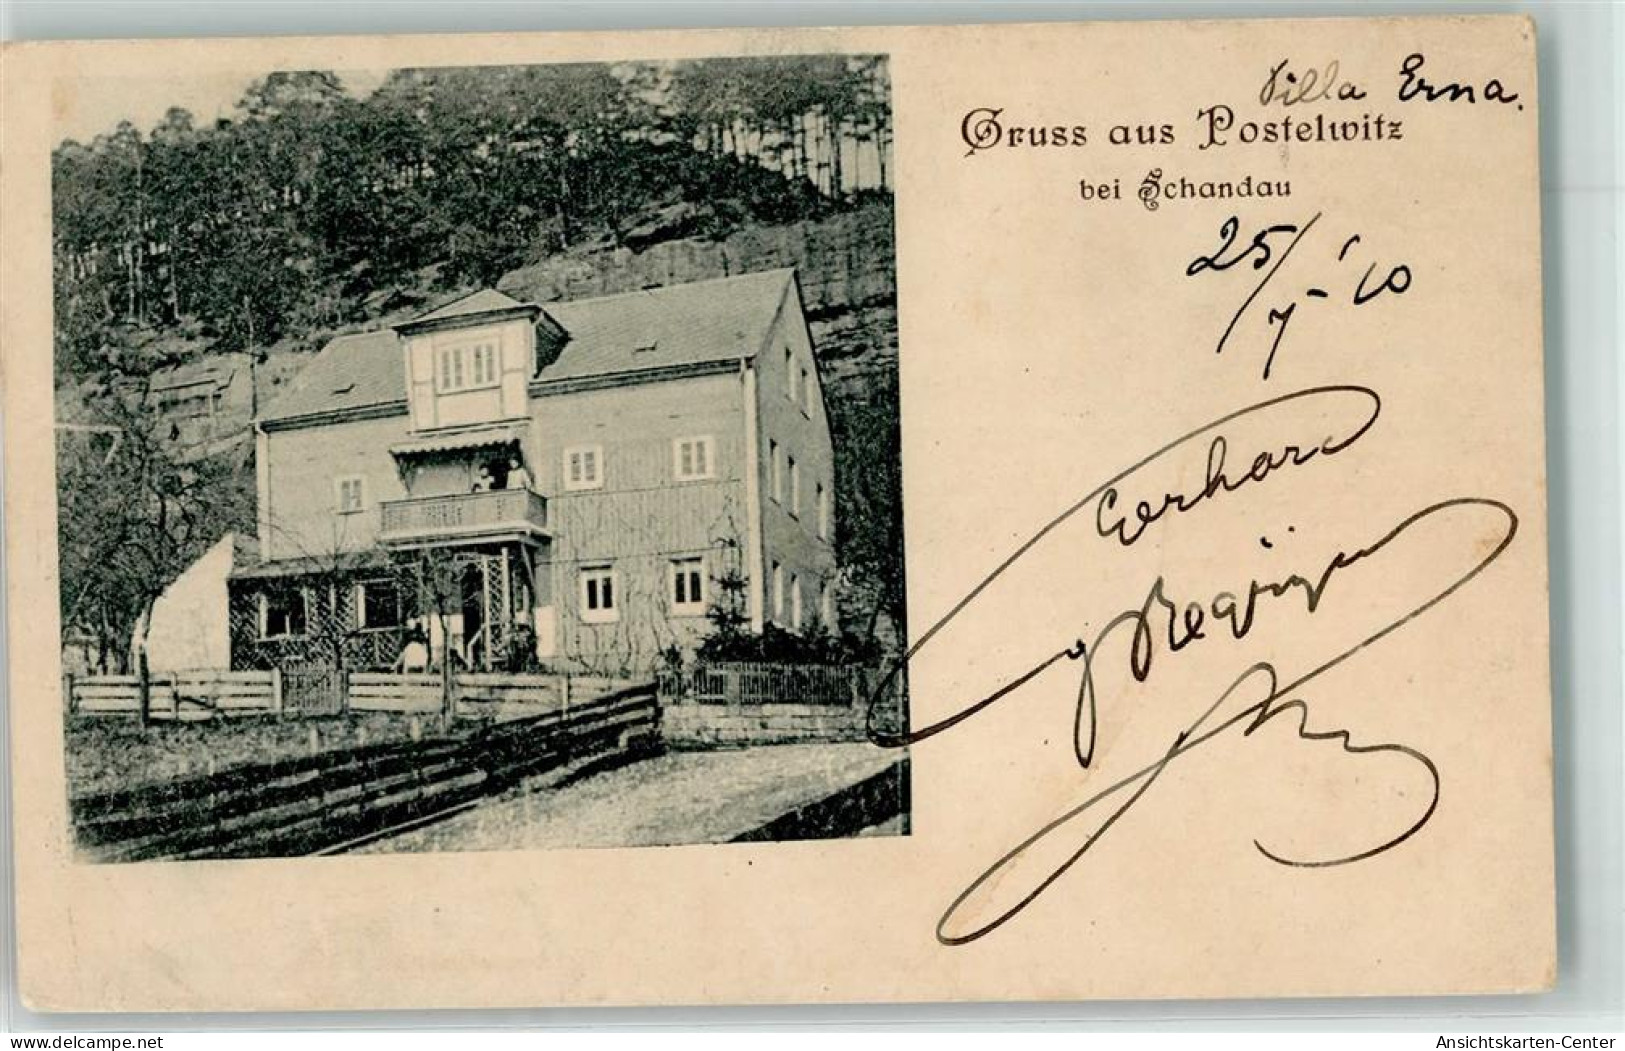 Villa Erna.
Gruss aus Postelwitz
bei Schandau
25/7-'10
Gerhard
www.delcampe.net
Ansichtskarten-Center